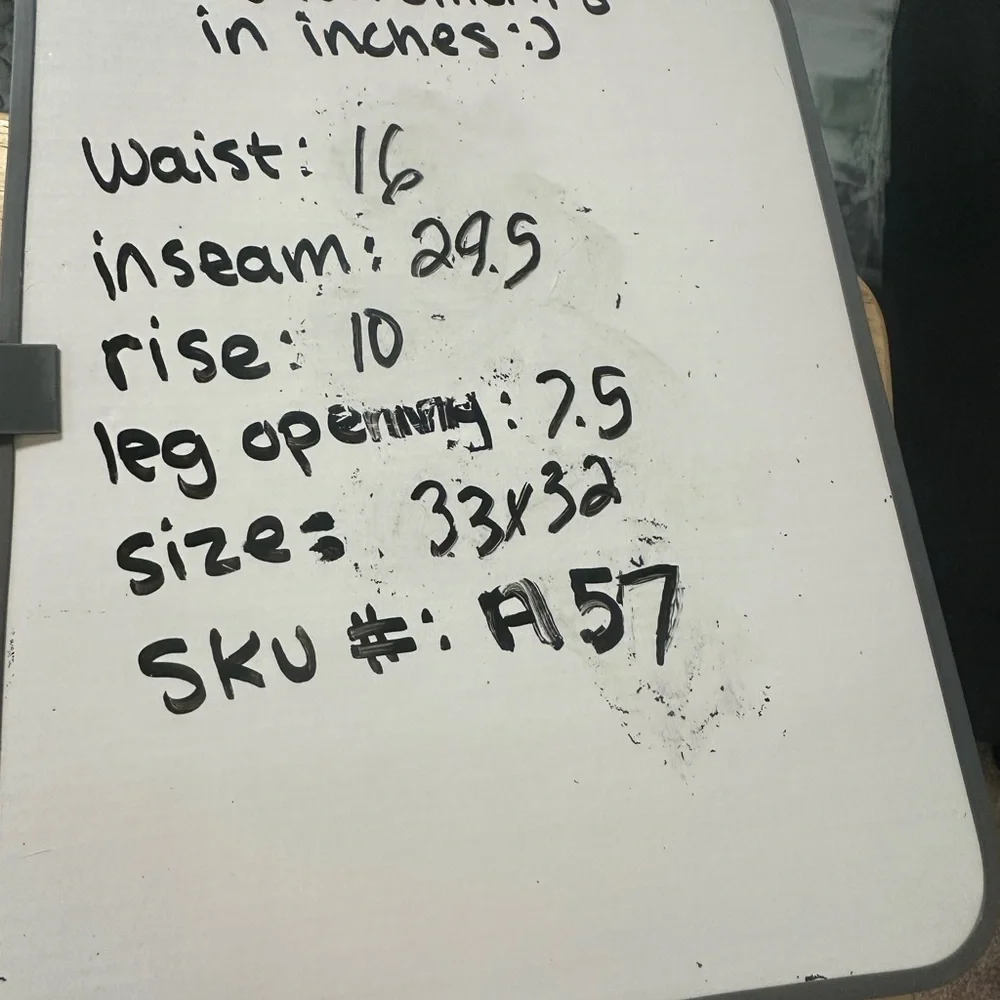 in inches:)
waist: 16
inseam: 29.5
rise: 10
leg opening: 7.5
size: 33x32
SKU #: A57